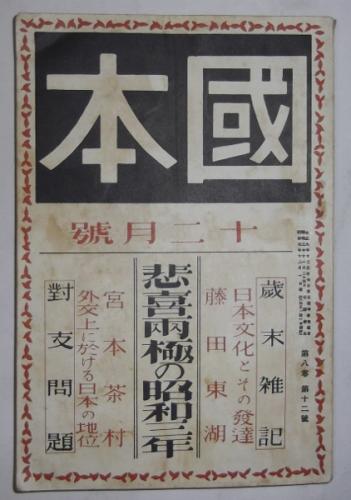 國本
十二月號
第八巻 第十二號
歲末雑記
日本文化とその發達
藤田東湖
悲喜兩極の昭和三年
宮本茶村
外交上に於ける日本の地位
對支問題